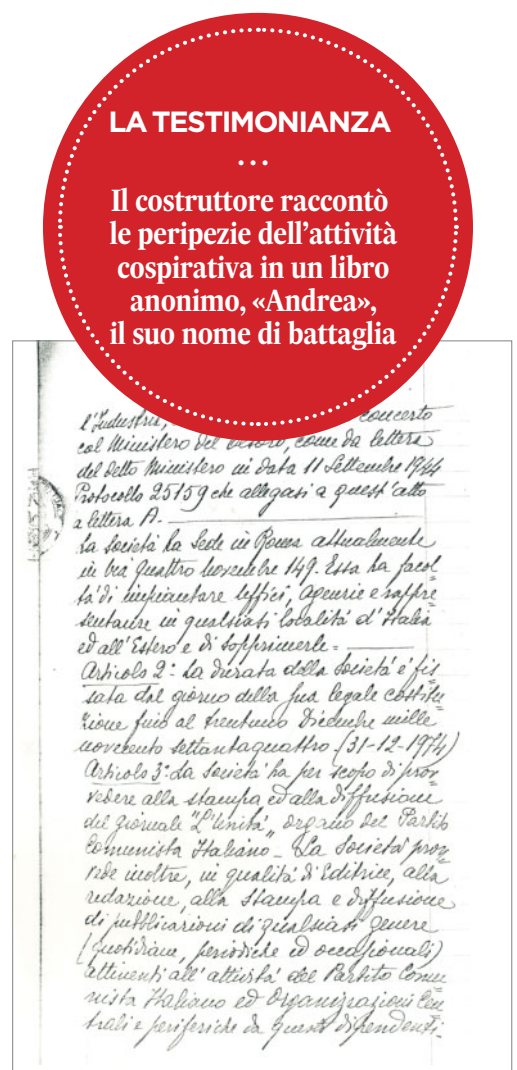 LA TESTIMONIANZA
...
Il costruttore raccontò
le peripezie dell'attività
cospirativa in un libro
anonimo, «Andrea»,
il suo nome di battaglia
l'Industria, concerto
col Ministero del Tesoro, come da lettera
del detto Ministero in data 11 Settembre 1944
Protocollo 25159 che allegasi a quest'atto
a lettera A.
La Società ha Sede in Roma attualmente
in via quattro novembre 149. Essa ha facol=
tà di impiantare Uffici, agenzie e rappre=
sentanze in qualsiasi località d'Italia
ed all'Estero e di sopprimerle=
Articolo 2: La durata della Società è fis=
sata dal giorno della sua legale costitu=
zione fino al trentuno Dicembre mille
novecento settantaquattro (31-12-1974)
Articolo 3: La Società ha per scopo di prov=
vedere alla stampa ed alla diffusione
del giornale "L'Unità" organo del Partito
Comunista Italiano_ La Società prov=
vede inoltre, in qualità di Editrice, alla
redazione, alla stampa e diffusione
di pubblicazioni di qualsiasi genere
(quotidiane, periodiche ed occasionali)
attinenti all'attività del Partito Comu=
nista Italiano ed Organizzazioni Cen=
trali e periferiche da questi dipendenti.